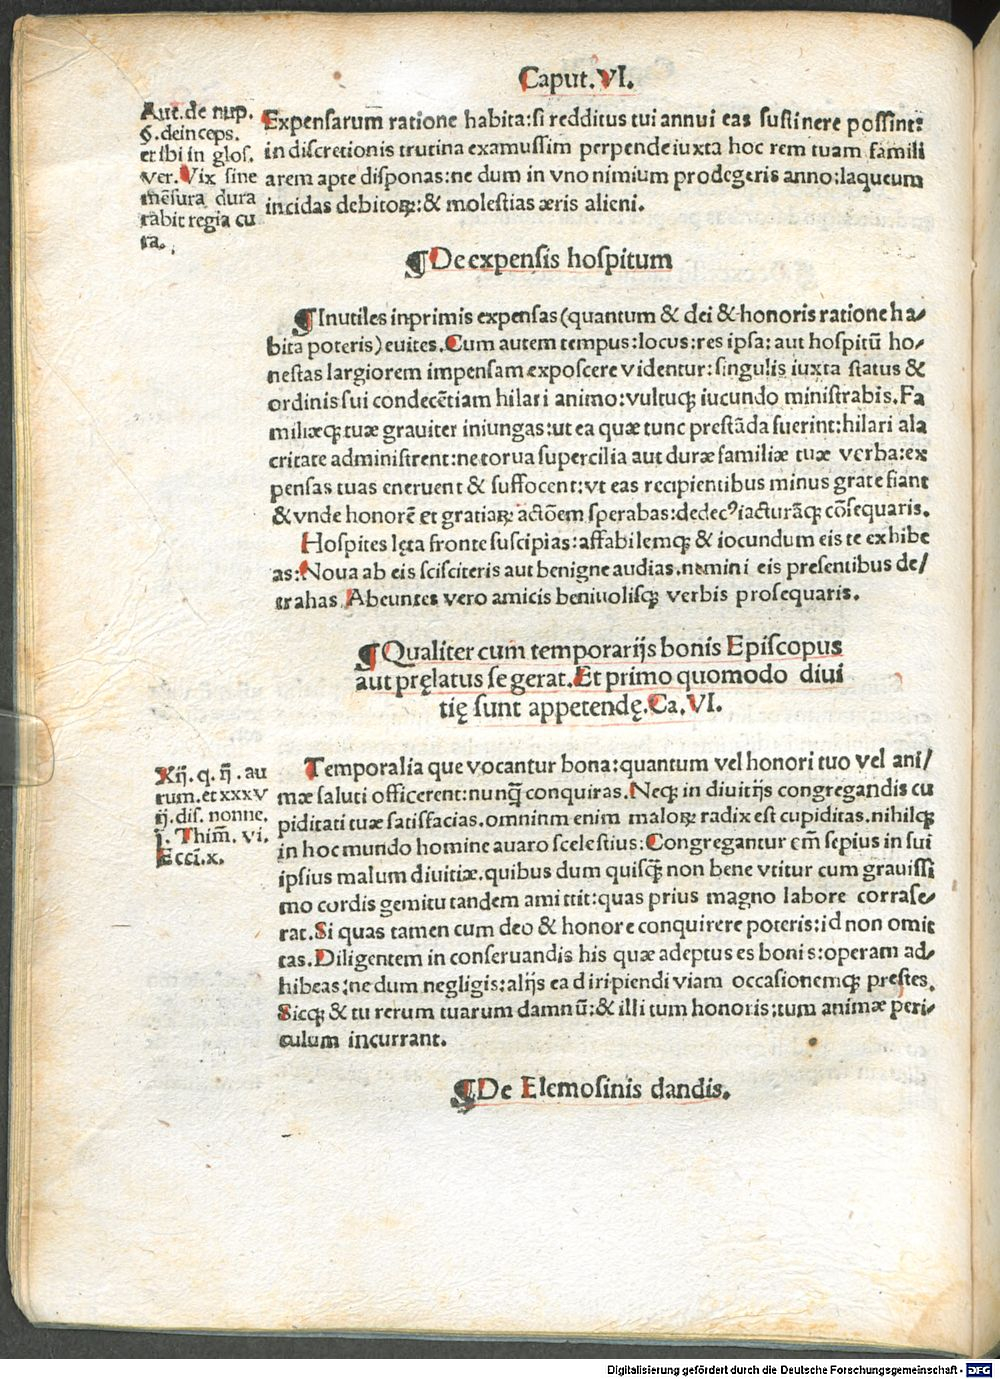 Caput. VI.
Aut. de nup.
§. deinceps.
et ibi in glos.
ver. Vix sine
mēsura dura
rabit regia cu
ra.
Expensarum ratione habita: si redditus tui annui eas sustinere possint:
in discretionis trutina examussim perpende iuxta hoc rem tuam famili
arem apte disponas: ne dum in vno nimium prodegeris anno: laqueum
incidas debitoꝝ: & molestias æris alieni.
¶ De expensis hospitum
¶ Inutiles inprimis expensas (quantum & dei & honoris ratione ha/
bita poteris) euites. Cum autem tempus: locus: res ipsa: aut hospitū ho/
nestas largiorem impensam exposcere videntur: singulis iuxta status &
ordinis sui condecētiam hilari animo: vultuqꝫ iucundo ministrabis. Fa
miliæqꝫ tuæ grauiter iniungas: ut ea quæ tunc prestāda fuerint: hilari ala
critate administrent: ne torua supercilia aut duræ familiæ tuæ verba: ex
pensas tuas eneruent & suffocent: vt eas recipientibus minus grate fiant
& vnde honorē et gratiaꝝ actōem sperabas: dedecꝰ iacturāqꝫ cōsequaris.
Hospites lęta fronte suscipias: affabilemqꝫ & iocundum eis te exhibe
as: Noua ab eis scisciteris aut benigne audias. nemini eis presentibus de/
trahas. Abeuntes vero amicis beniuolisqꝫ verbis prosequaris.
¶ Qualiter cum temporarijs bonis Episcopus
aut pręlatus se gerat. Et primo quomodo diui
tię sunt appetendę. Ca. VI.
Xij. q. ij. au
rum. et xxxv
ij. dis. nonne.
j. Thim̄. vi.
Eccī. x.
Temporalia que vocantur bona: quantum vel honori tuo vel ani/
mæ saluti officerent: nunq̄ conquiras. Neqꝫ in diuitijs congregandis cu
piditati tuæ satisfacias. omninm enim maloꝝ radix est cupiditas. nihilqꝫ
in hoc mundo homine auaro scelestius: Congregantur em̄ sepius in sui
ipsius malum diuitiæ. quibus dum quisq̄ non bene vtitur cum grauissi
mo cordis gemitu tandem amittit: quas prius magno labore corrase/
rat. Si quas tamen cum deo & honore conquirere poteris: id non omit
tas. Diligentem in conseruandis his quæ adeptus es bonis: operam ad/
hibeas: ne dum negligis: alijs ea diripiendi viam occasionemqꝫ prestes.
Sicqꝫ & tu rerum tuarum damnū: & illi tum honoris: tum animæ peri/
culum incurrant.
¶ De Elemosinis dandis.
Digitalisierung gefördert durch die Deutsche Forschungsgemeinschaft - DFG